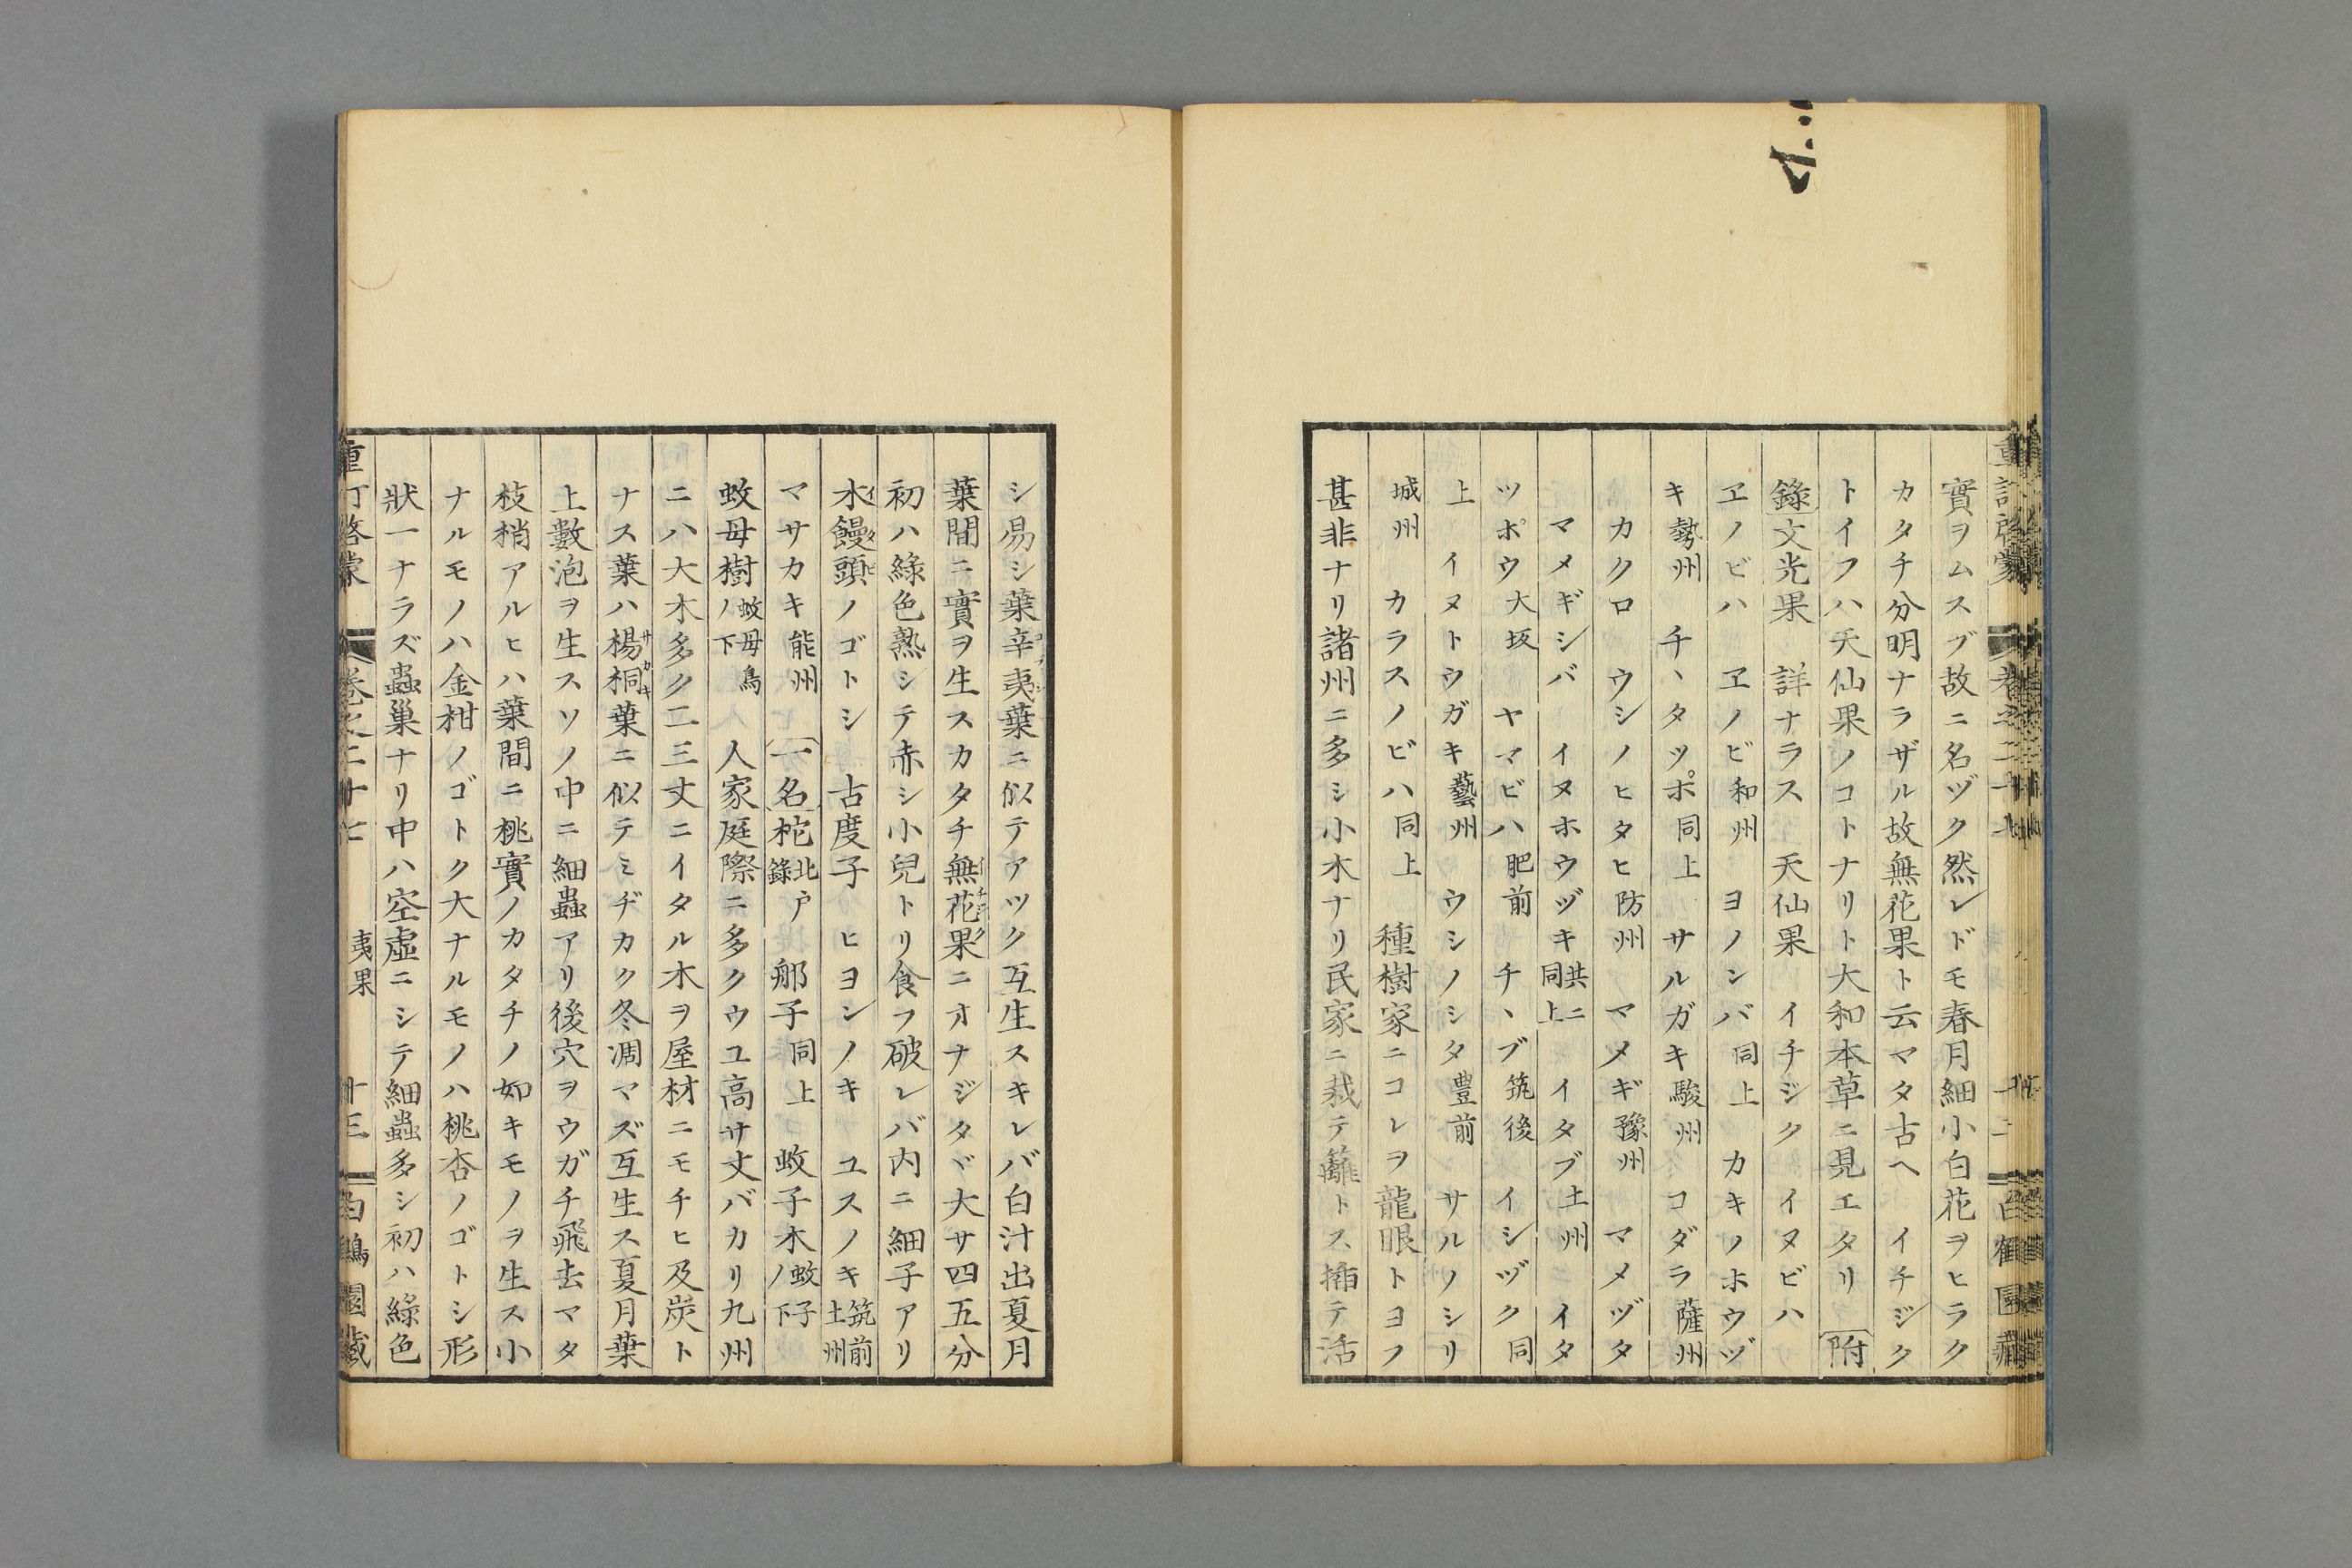 實ヲムスブ故ニ名ヅク然レドモ春月細小白花ヲヒラク
カタチ分明ナラザル故無花果ト云マタ古ヘイチジク
トイフハ天仙果ノコトナリト大和本草ニ見エタリ 附
錄文光果 詳ナラス 天仙果 イチジク イヌビハ
ヱノビハ ヱノビ和州 ヨノンバ同上 カキノホウヅ
キ勢州 チヽタツポ同上 サルガキ駿州 コダラ薩州
カクロ ウシノヒタヒ防州 マメギ豫州 マメヅタ
マメギシバ イヌホウヅキ共ニ同上 イタブ土州 イタ
ツポウ大坂 ヤマビハ肥前 チヽブ筑後 イシヅク同
上 イヌトウガキ藝州 ウシノシタ豊前 サルノシリ
城州 カラスノビハ同上 種樹家ニコレヲ龍眼トヨフ
甚非ナリ諸州ニ多シ小木ナリ民家ニ栽テ籬トス揷テ活
シ易シ葉辛夷葉ニ似テアツク互生スキレバ白汁出夏月
葉間ニ實ヲ生スカタチ無花果ニオナジタヾ大サ四五分
初ハ綠色熟シテ赤シ小兒トリ食フ破レバ内ニ細子アリ
木饅頭ノゴトシ 古度子 ヒヨンノキ ユスノキ筑前土州
マサカキ能州 一名柁北戶錄 郍子同上 蚊子木蚊子ノ下
蚊母樹蚊母鳥ノ下 人家庭際ニ多クウユ高サ丈バカリ九州
ニハ大木多ク二三丈ニイタル木ヲ屋材ニモチヒ及炭ト
ナス葉ハ楊桐葉ニ似テミヂカク冬凋マズ互生ス夏月葉
上數泡ヲ生スソノ中ニ細蟲アリ後穴ヲウガチ飛去マタ
枝梢アルヒハ葉間ニ桃實ノカタチノ如キモノヲ生ス小
ナルモノハ金柑ノゴトク大ナルモノハ桃杏ノゴトシ形
狀一ナラズ蟲巢ナリ中ハ空虛ニシテ細蟲多シ初ハ綠色
卷之二十七 夷果 十三